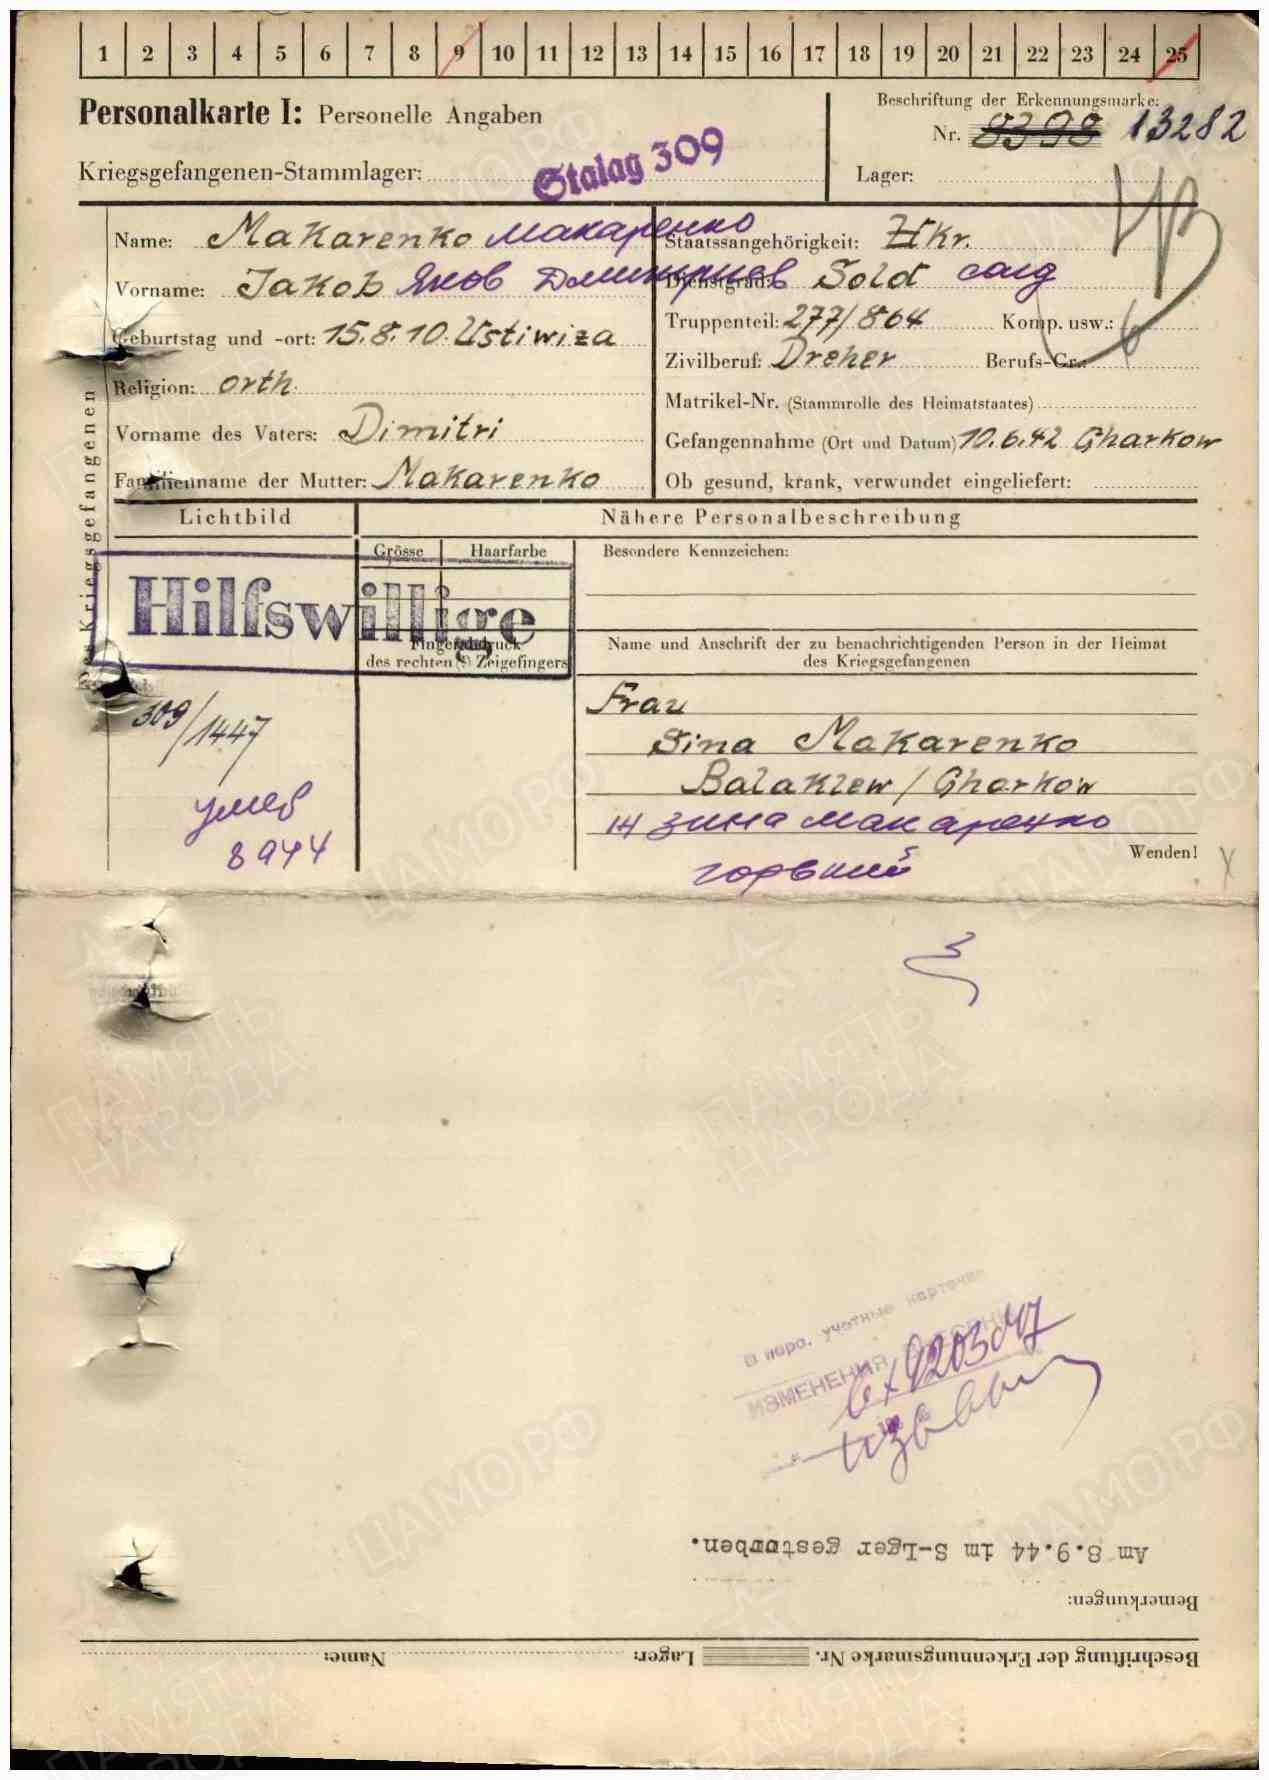 1 2 3 4 5 6 7 8 9 10 11 12 13 14 15 16 17 18 19 20 21 22 23 24 25
Personalkarte I: Personelle Angaben
Beschriftung der Erkennungsmarke:
Nr. 8398 13282
Kriegsgefangenen-Stammlager: Stalag 309
Lager:
Name: Makarenko Макаренко
Staatsangehörigkeit: Ukr.
Vorname: Jakob Яков Дмитриев
Dienstgrad: Sold солд
Geburtstag und -ort: 15.8.10. Ustiwiza
Truppenteil: 277/864 Komp. usw.: 6
Zivilberuf: Dreher Berufs-Gr.:
Religion: orth.
Matrikel-Nr. (Stammrolle des Heimatstaates)
Vorname des Vaters: Dimitri
Gefangennahme (Ort und Datum) 10.6.42 Charkow
Familienname der Mutter: Makarenko
Ob gesund, krank, verwundet eingeliefert:
des Kriegsgefangenen
Lichtbild
Nähere Personalbeschreibung
Grösse Haarfarbe
Besondere Kennzeichen:
Hilfswillige
Fingerabdruck
des rechten (!) Zeigefingers
Name und Anschrift der zu benachrichtigenden Person in der Heimat
des Kriegsgefangenen
Frau
Sina Makarenko
Balaklew / Charkow
Зина Макаренко
309/1447
умер
8 9 44
Wenden!
В перс. учетные карточки
ИЗМЕНЕНИЯ
Am 8.9.44 im S-Lger gestorben.
Bemerkungen:
Beschriftung der Erkennungsmarke Nr. Lager: Name:
ПАМЯТЬ
НАРОДА
ЦАМО РФ